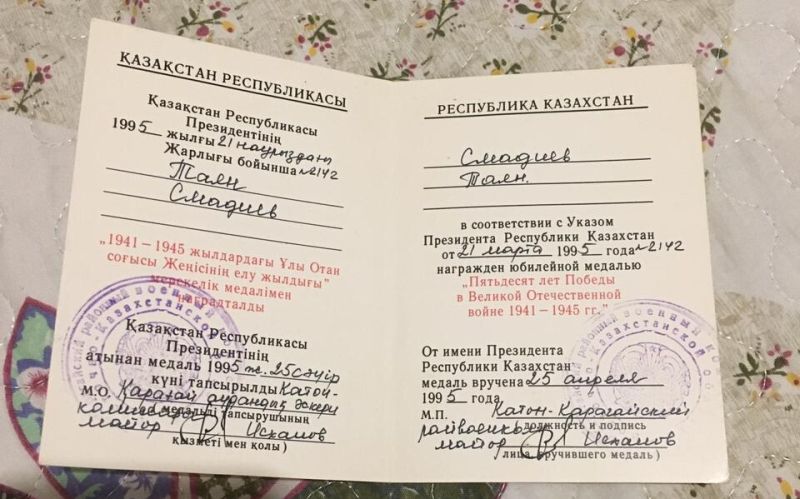 ҚАЗАҚСТАН РЕСПУБЛИКАСЫ
Қазақстан Республикасы
Президентінің
1995 жылғы 21 наурыздағы
Жарлығы бойынша №2142
Таян
Смадиев
„1941 – 1945 жылдардағы Ұлы Отан
соғысы Жеңісінің елу жылдығы"
мерекелік медалімен
наградталды
Қазақстан Республикасы
Президентінің
атынан медаль 1995 ж. 25 сәуір
күні тапсырылды Катон-
М.О. Қарағай аудандық әскери
медальді тапсырушының
майор Исханов
қызметі мен қолы)
РЕСПУБЛИКА КАЗАХСТАН
Смадиев
Таян.
в соответствии с Указом
Президента Республики Казахстан
от 21 марта 1995 года №2142
награжден юбилейной медалью
"Пятьдесят лет Победы
в Великой Отечественной
войне 1941-1945 гг."
От имени Президента
Республики Казахстан
медаль вручена 25 апреля
1995 года
М.П. Катон-Карагайский
райвоенком должность и подпись
майор Исханов
лица, вручившего медаль)